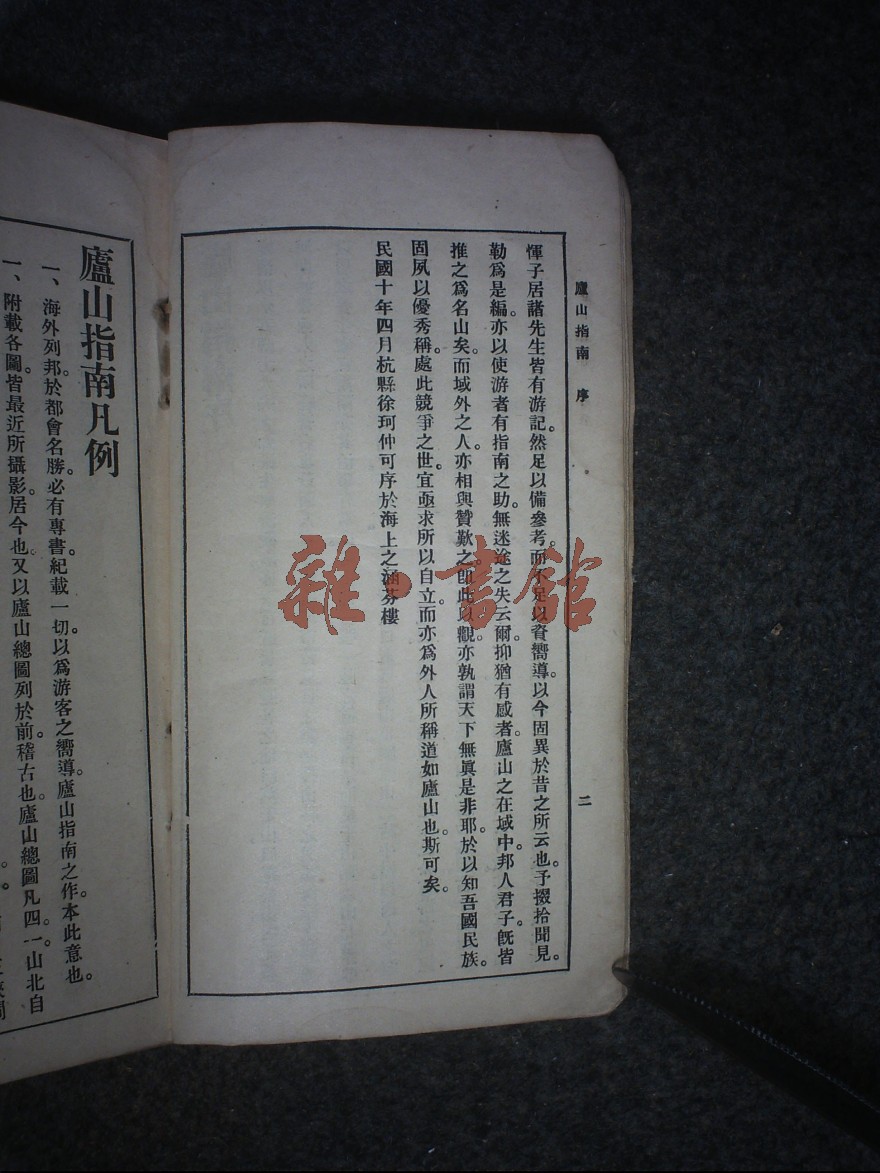 廬山指南 序
二
惲子居諸先生皆有游記。然足以備參考。而不足以資嚮導。以今固異於昔之所云也。予掇拾聞見。
勒爲是編。亦以使游者有指南之助。無迷途之失云爾。抑猶有感者。廬山之在域中。邦人君子。旣皆
推之爲名山矣。而域外之人。亦相與贊歎之。卽此以觀。亦孰謂天下無眞是非耶。於以知吾國民族。
固夙以優秀稱。處此競爭之世。宜亟求所以自立。而亦爲外人所稱道如廬山也。斯可矣。
民國十年四月杭縣徐珂仲可序於海上之涵芬樓
廬山指南凡例
一、海外列邦。於都會名勝。必有專書。紀載一切。以爲游客之嚮導。廬山指南之作。本此意也。
一、附載各圖。皆最近所攝影。居今也。又以廬山總圖列於前。稽古也。廬山總圖凡四。一山北自
雜·書館